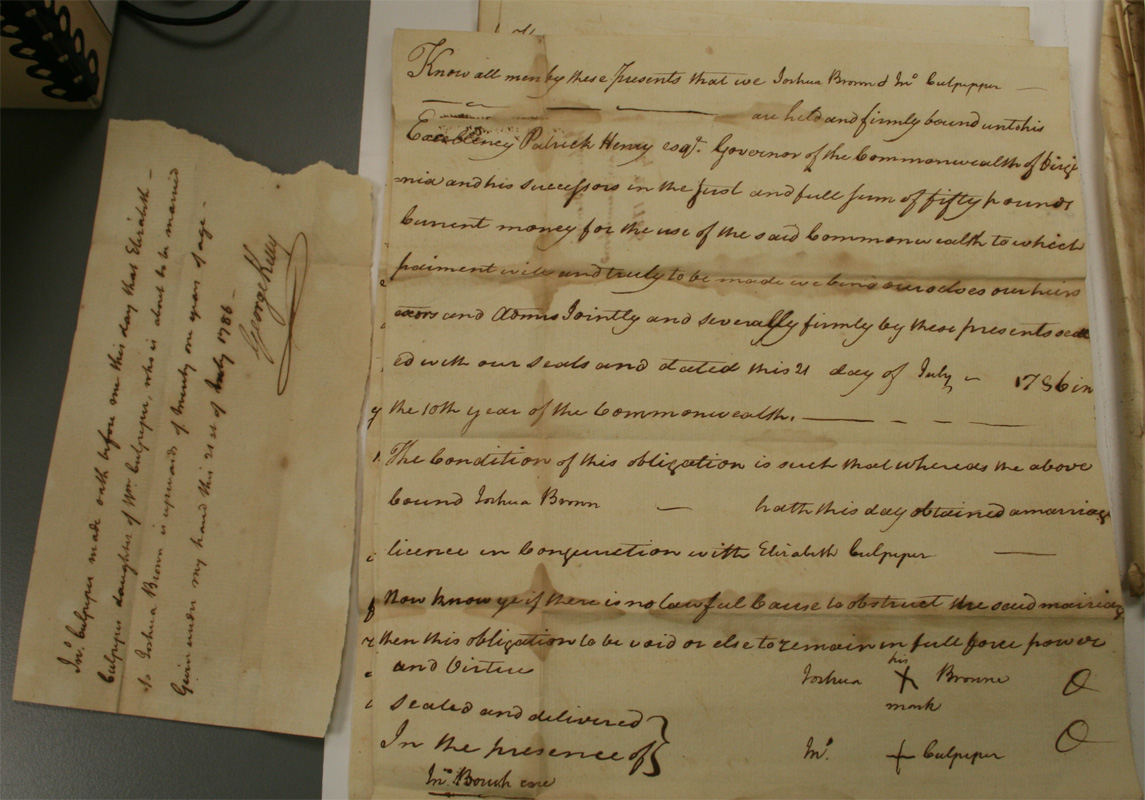 Know all men by these presents that we Joshua Brown & Jnº Culpepper
are held and firmly bound unto his
Excellency Patrick Henry esqr. Governor of the Commonwealth of Virgi
nia and his successors in the Just and full sum of fifty pounds
Current money for the use of the said Commonwealth to which
paiment will and truly to be made we bind ourselves our heirs
exors and Admrs Jointly and severally firmly by these presents seal
ed with our seals and dated this 21 day of July 1786 in
the 10th year of the Commonwealth.
The Condition of this obligation is such that whereas the above
bound Joshua Brown hath this day obtained a marriage
licence in Conjunction with Elizabeth Culpeper
Now know ye if there is no lawful Cause to obstruct the said marriag
then this obligation to be void or else to remain in full force power
and Virtue
Joshua his X mark Browne
sealed and delivered
In the presence of
Jnº + Culpeper
Jnº
Jnº Culpeper made oath before me this day that Elizabeth
Culpeper daughter of Wm Culpeper, who is about to be married
to Joshua Brown is upwards of twenty one years of age
Given under my hand this 21st of July 1786
George Kelly